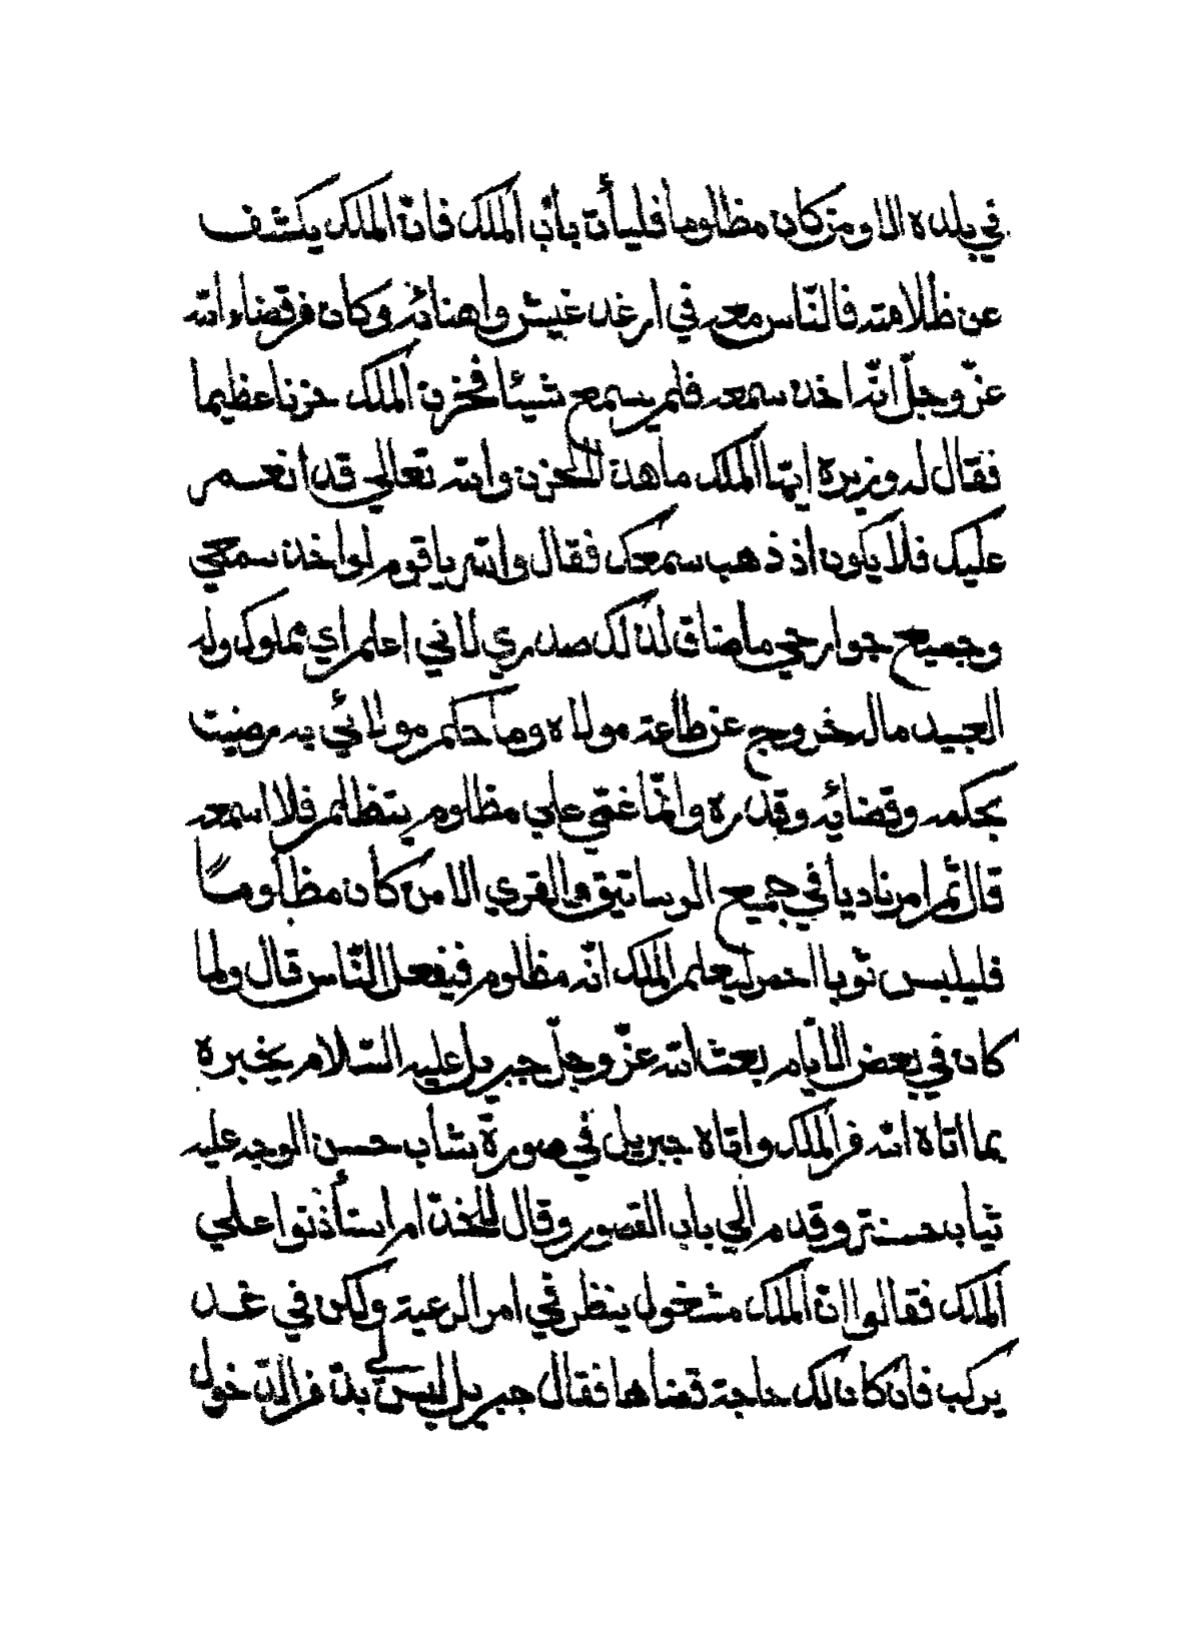 في بلده الا ومن كان مظلوما فليأت باب الملك فانّ الملك يكشف
عن ظلامته فالنّاس معه في ارغد عيش واهنائه وكان من قضاء الله
عزّ وجلّ انّه اخذ سمعه فلم يسمع شيئا فحزن الملك حزنا عظيما
فقال له وزيره ايّها الملك ما هذا الحزن والله تعالي قد انعم
عليك فلا يكون اذ ذهب سمعك فقال والله يا قوم لو اخذ سمعي
وجميع جوارحي ما ضاق لذلك صدري لاني اعلم اي مملوك وله
العبيد ماله خروج عن طاعة مولاه وما حكم مولائي به رضيت
بحكمه وقضائه وقدره وانّما غمّي علي مظلوم يتظالم فلا اسمعه
قال ثم امر ناديا في جميع الرساتيق والقري الا من كان مظلوما
فليلبس ثوبا احمر ليعلم الملك انّه مظلوم فيفعل النّاس قال ولما
كان في بعض الايّام بعث الله عزّ وجلّ جبريل عليه السّلام يخبره
بما اتاه الله من الملك واتاه جبريل في صورة شاب حسن الوجه عليه
ثياب حسنة وقدم الي باب القصور وقال للخدّام استأذنوا علي
الملك فقالوا انّ الملك مشغول ينظر في امر الرعية ولكن في غد
يركب فان كان لك حاجة قضاها فقال جبريل ليس لي بدّ من الدّخول